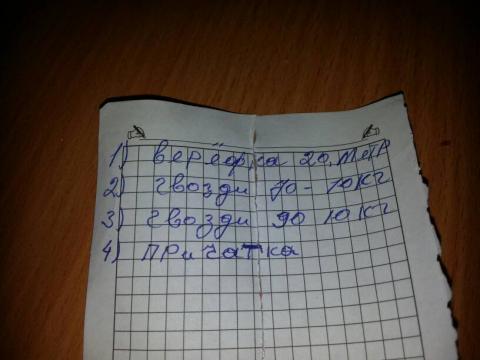 1) верёфка 20. метр
2) гвозди 70- 10 кг
3) гвозди 90 10 кг
4) причатка